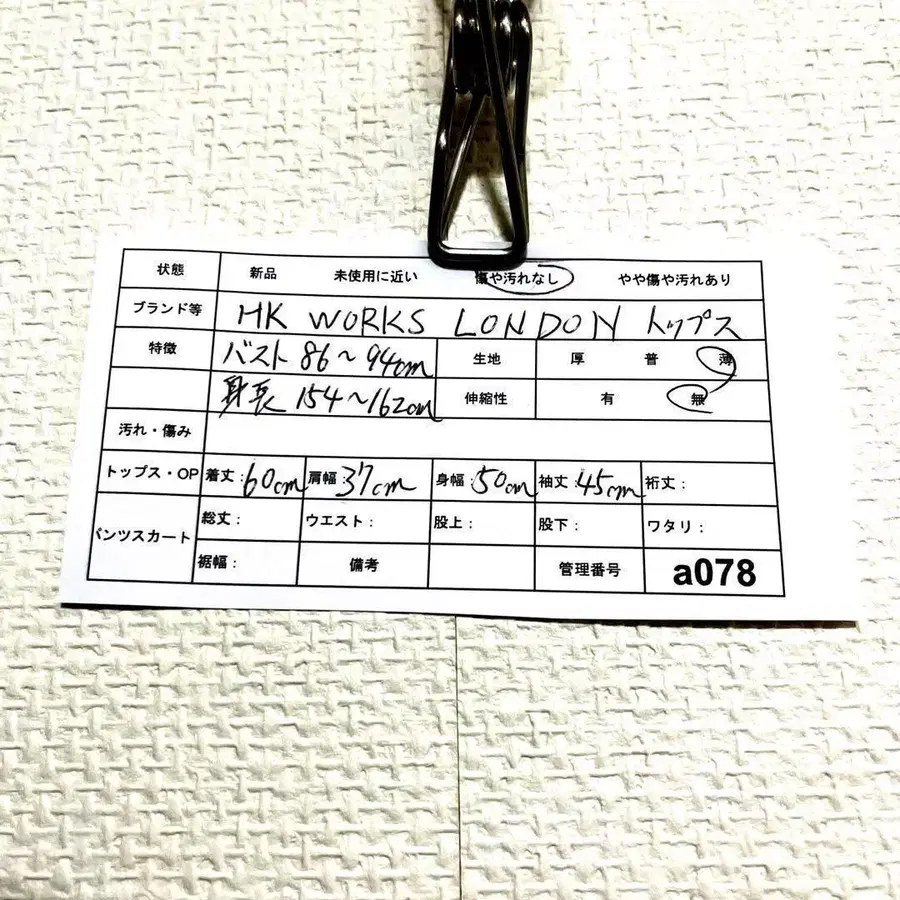 状態 新品 未使用に近い 傷や汚れなし やや傷や汚れあり
ブランド等 HK WORKS LONDON トップス
特徴 バスト 86～94cm 生地 厚 普 薄
身長 154～162cm 伸縮性 有 無
汚れ・傷み
トップス・OP 着丈:60cm 肩幅:37cm 身幅:50cm 袖丈:45cm 裄丈:
パンツスカート 総丈: ウエスト: 股上: 股下: ワタリ:
裾幅: 備考 管理番号 a078